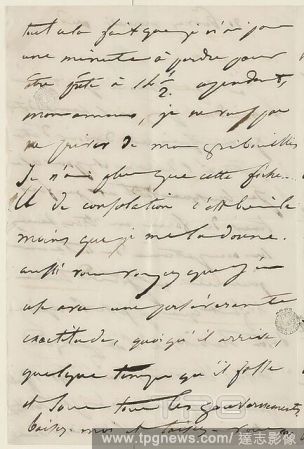 tout cela fait que je n'ai pas
une minute à perdre pour
être prête à 1h ½. cependant,
mon amour, je ne veux pas
me priver de mon gribouillis
Je n'ai plus que cette fiche
de consolation c'est bien le
moins que je me la donne.
aussi vous voyez que j'en
use avec une persévérante
exactitude, quoiqu'il arrive,
quelque temps qu'il fasse
et sous tous les gouvernements
baisez-moi et
TPG
www.tpgnews.com/達志影像